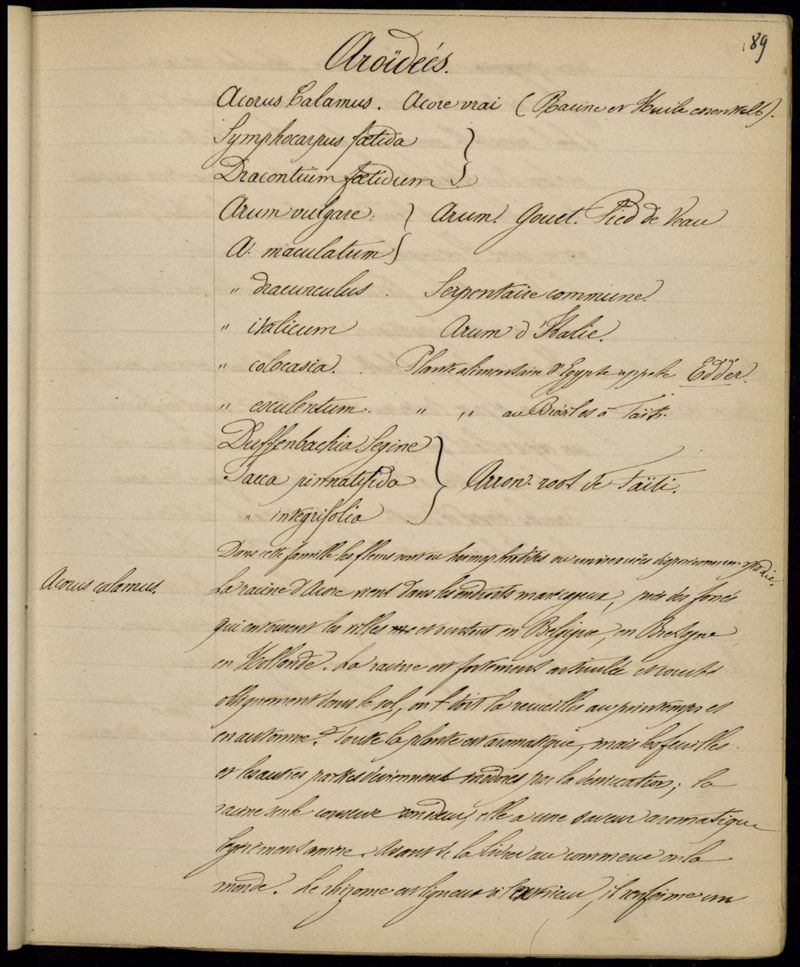 89
Aroïdeés.
Acorus Calamus. Acore vrai (Racine et Huile essentielle).
Symphocarpus fœtida
Dracontium fœtidum
Arum vulgare. Arum. Gouet. Pied de Veau
A. maculatum
" dracunculus. Serpentaire commune.
" italicum Arum d'Italie.
" colocasia. Plante alimentaire d'Egypte appelé Edder.
" esculentum. " " au Brésil et à Taïti.
Dieffenbachia Segine
Tacca pinnatifida Arrow-root de Taïti.
" integrifolia
Dans cette famille les fleurs sont ou hermaphrodites ou unisexuées disposées en spadice.
Acorus calamus.
La racine d'Acore vient dans les endroits marécageux, près des fossés
qui entourent les villes et surtout en Belgique, en Bretagne,
en Hollande. La racine est fortement articulée et court
obliquement sous le sol, on doit la recueillir au printemps et
en automne. Toute la plante est aromatique, mais les feuilles
et les autres parties deviennent inodores par la dessication; la
racine seule conserve son odeur, elle a une saveur aromatique
légèrement amère. Avant de la livrer au commerce on la
monde. Le rhizome est ligneux à l'extérieur, il renferme un